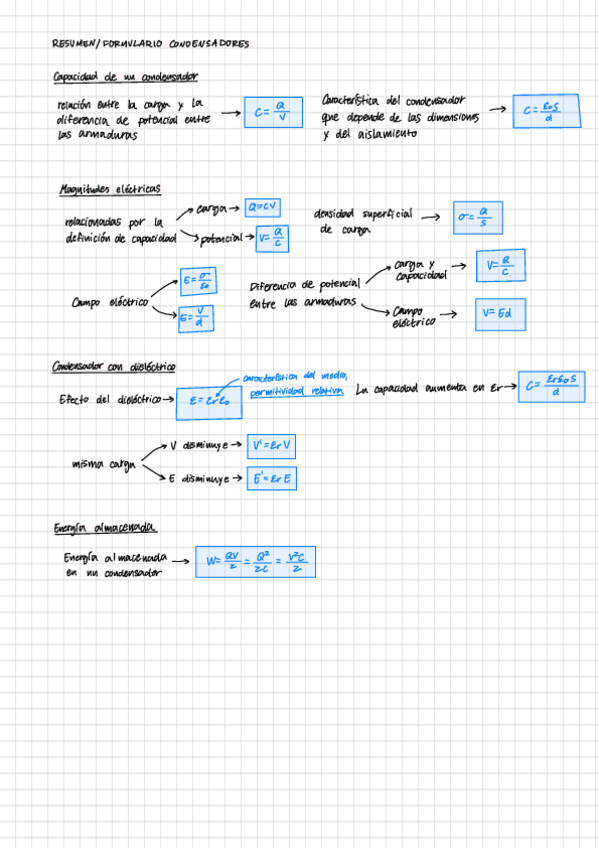 RESUMEN/FORMULARIO CONDENSADORES
Capacidad de un condensador
relación entre la carga y la
diferencia de potencial entre
las armaduras
C = Q/V
Característica del condensador
que depende de las dimensiones
y del aislamiento
C = ε₀S/d
Magnitudes eléctricas
relacionadas por la
definición de capacidad
carga → Q=CV
potencial → V = Q/C
densidad superficial
de carga
σ = Q/S
Campo eléctrico
E = σ/ε₀
E = V/d
Diferencia de potencial
entre las armaduras
carga y
capacidad
V = Q/C
Campo
eléctrico
V = Ed
Condensador con dieléctrico
Efecto del dieléctrico → ε = εr ε₀
característica del medio,
permitividad relativa
La capacidad aumenta en εr → C = εrε₀S/d
misma carga
V disminuye → V' = εr V
E disminuye → E' = εr E
Energía almacenada
Energía almacenada
en un condensador
W = QV/2 = Q²/2C = V²C/2